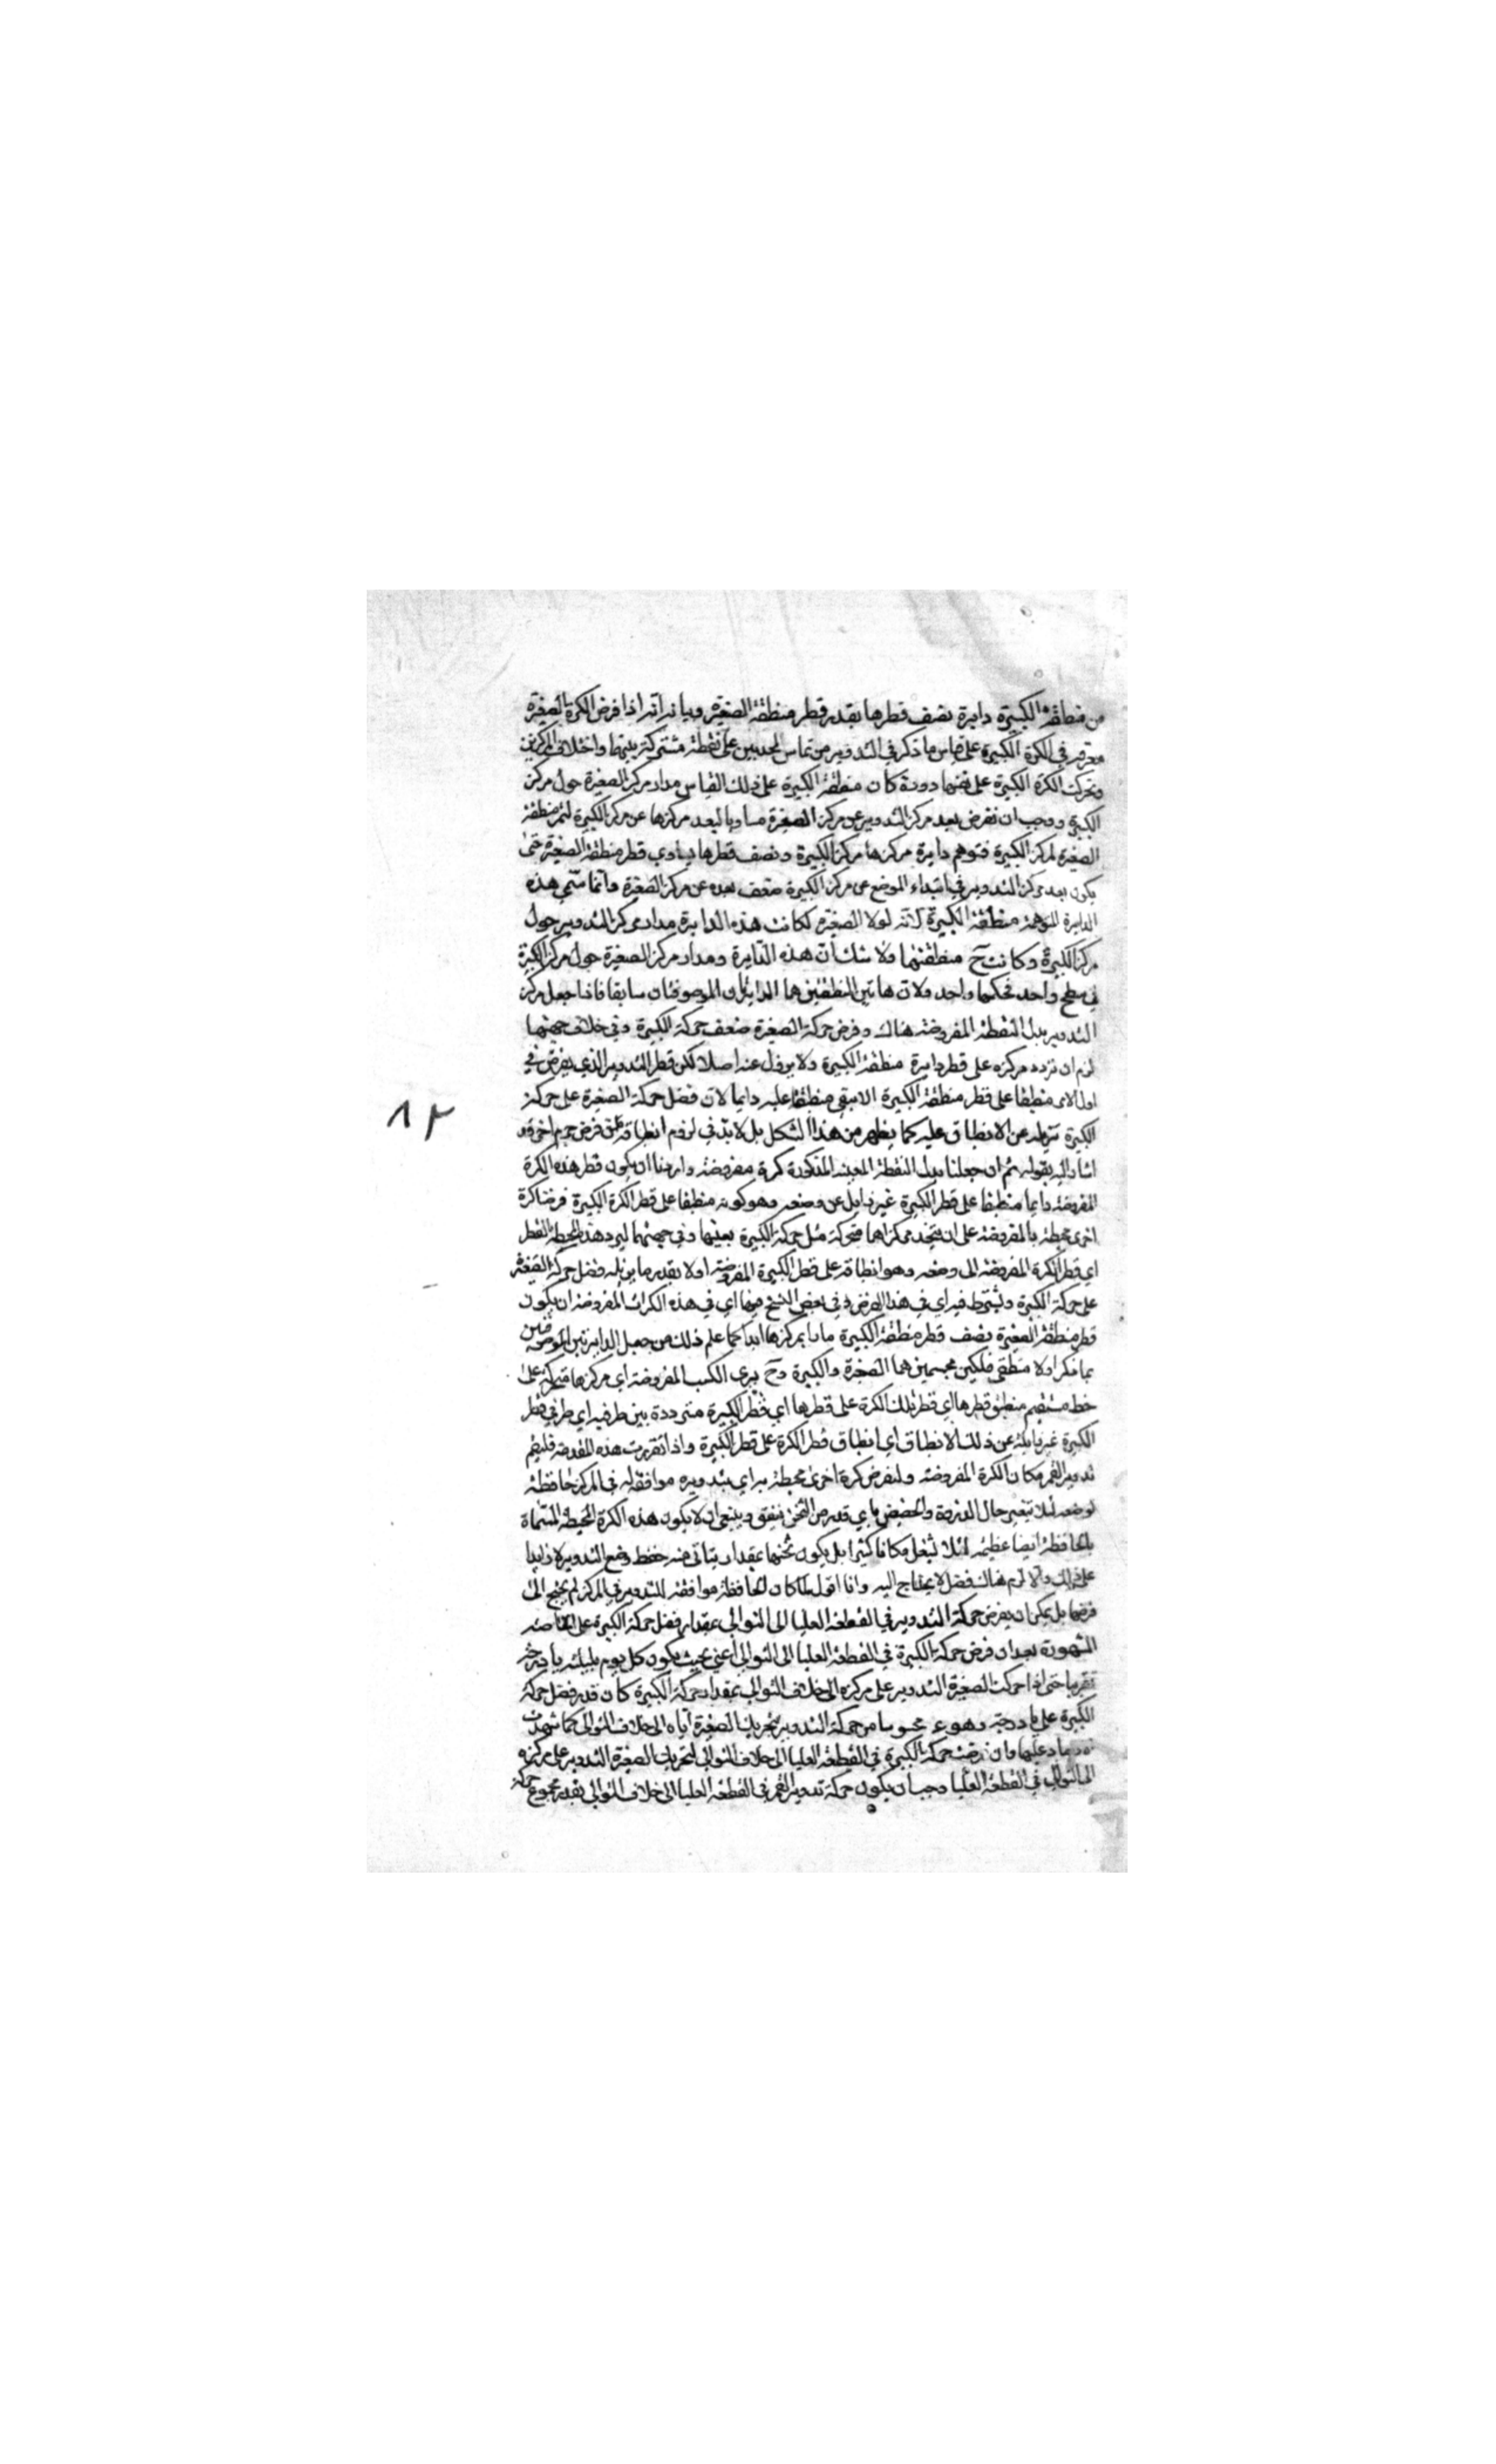 من منطقة الكبيرة دايرة نصف قطرها بقدر قطر منطقة الصغيرة وبيانه انه اذا فرض الكرة الصغيرة
في الكرة الكبيرة على قياس ما ذكر في التدوير من تماس المحدبين على نقطة مشتركة بينهما واختلاف المركزين
وتحركت الكرة الكبيرة على نفسها دورة كان منطقة الكبيرة على ذلك القياس مدار مركز الصغيرة حول مركز
الكبيرة ووجب ان نفرض بعد مركز التدوير عن مركز الصغيرة مساويا لبعد مركزها عن مركز الكبيرة لتمر منطقة
الصغيرة لمركز الكبيرة فتوهم دايرة مركزها مركز الكبيرة ونصف قطرها يساوي قطر منطقة الصغيرة حتى
يكون بعد مركز التدوير في ابتداء الوضع عن مركز الكبيرة ضعف بعده عن مركز الصغيرة وانما سمي هذه
الدايرة المتوهمة منطقة الكبيرة لانه لولا الصغيرة لكانت هذه الدايرة مدار مركز التدوير حول
مركز الكبيرة وكانت ح منطقتهما ولا شك ان هذه الدايرة ومدار مركز الصغيرة حول مركز الكبيرة
في سطح واحد فحكمهما واحد ولان هاتين المنطقتين هما الدايرتان الموصوفتان سابقا فاذا جعل مركز
التدوير بدل النقطة المفروضة هناك وفرض حركة الصغيرة ضعف حركة الكبيرة وفي خلاف جهتها
لزم ان تردد مركزه على قطر دايرة منطقة الكبيرة ولا يزول عنه اصلا لكن قطر التدوير الذي يفرض في
اول الامر منطبقا على قطر منطقة الكبيرة لا يبقى منطبقا عليه دايما لان فضل حركة الصغيرة على حركة
الكبيرة تزيله عن الانطباق عليه كما يظهر من هذا الشكل بل لا بد في لزوم انطباقه من فرض جرم اخر وقد
اشار اليه بقوله ثم ان جعلنا بدل النقطة المعينة المذكورة كرة مفروضة واردنا ان يكون قطر هذه الكرة
المفروضة دايما منطبقا على قطر الكبيرة غير زايل عن وضعه وهو كونه منطبقا على قطر الكرة الكبيرة فرضنا كرة
اخرى محيطة بالمفروضة على ان يتحد مركزاهما متحركة مثل حركة الكبيرة بعينها وفي جهتها ليرد هذه المحيطة القطر
اي قطر الكرة المفروضة الى وضعه وهو انطباقه على قطر الكبيرة المفروضة اولا بقدر ما يزيله فضل حركة الصغيرة
على حركة الكبيرة ويشترط فيه اي في هذا الفرض وفي بعض النسخ فيها اي في هذه الكرات المفروضة ان يكون
قطر منطقة الصغيرة نصف قطر منطقة الكبيرة مارا بمركزها ابدا كما علم ذلك من جعل الدايرتين الموصوفتين
بما ذكر اولا منطقتي فلكين مجسمين هما الصغيرة والكبيرة وح يرى الكرة المفروضة اي مركزها متحركة على
خط مستقيم منطبق قطرها اي قطر تلك الكرة على قطرها اي قطر الكبيرة مترددة بين طرفيه اي طرفي قطر
الكبيرة غير زايلة عن ذلك الانطباق اي انطباق قطر الكرة على قطر الكبيرة واذا تقررت هذه المقدمة فليقم
تدوير القمر مكان الكرة المفروضة ولنفرض كرة اخرى محيطة به اي بتدويره موافقة له في المركز حافظة
لوضعه لئلا يتغير حال الذروة والحضيض باي قدر من الثخن يتفق وينبغي ان لا يكون هذه الكرة المحيطة المسماة
بالحافظة ايضا عظيمة لئلا تشغل مكانا كثيرا بل يكون ثخنها بمقدار يتاتى منه حفظ وضع التدوير لا زايدا
على ذلك والا لزم هناك فضل لا يحتاج اليه وانا اقول لما كان الحافظة موافقة للتدوير في المركز لم يحتج الى
فرضها بل يمكن ان يفرض حركة التدوير في القطعة العليا الى التوالي بمقدار فضل حركة الكبيرة على الخاصة
المشهورة بعد ان فرض حركة الكبيرة في القطعة العليا الى التوالي اعني بحيث يكون كل يوم بليلته
تقريبا حتى اذا حركت الصغيرة التدوير على مركزه الى خلاف التوالي بمقدار حركة الكبيرة كان قدر فضل حركة
الكبيرة على درجة وهو محسوبا من حركة التدوير بتحريك الصغيرة اياه الى خلاف التوالي كما شهدت
عليها وان فرضت حركة الكبيرة في القطعة العليا الى خلاف التوالي لتحريك الصغيرة التدوير على مركزه
الى التوالي في القطعة العليا وجب ان يكون حركة تدوير القمر في القطعة العليا الى خلاف التوالي بقدر مجموع حركة